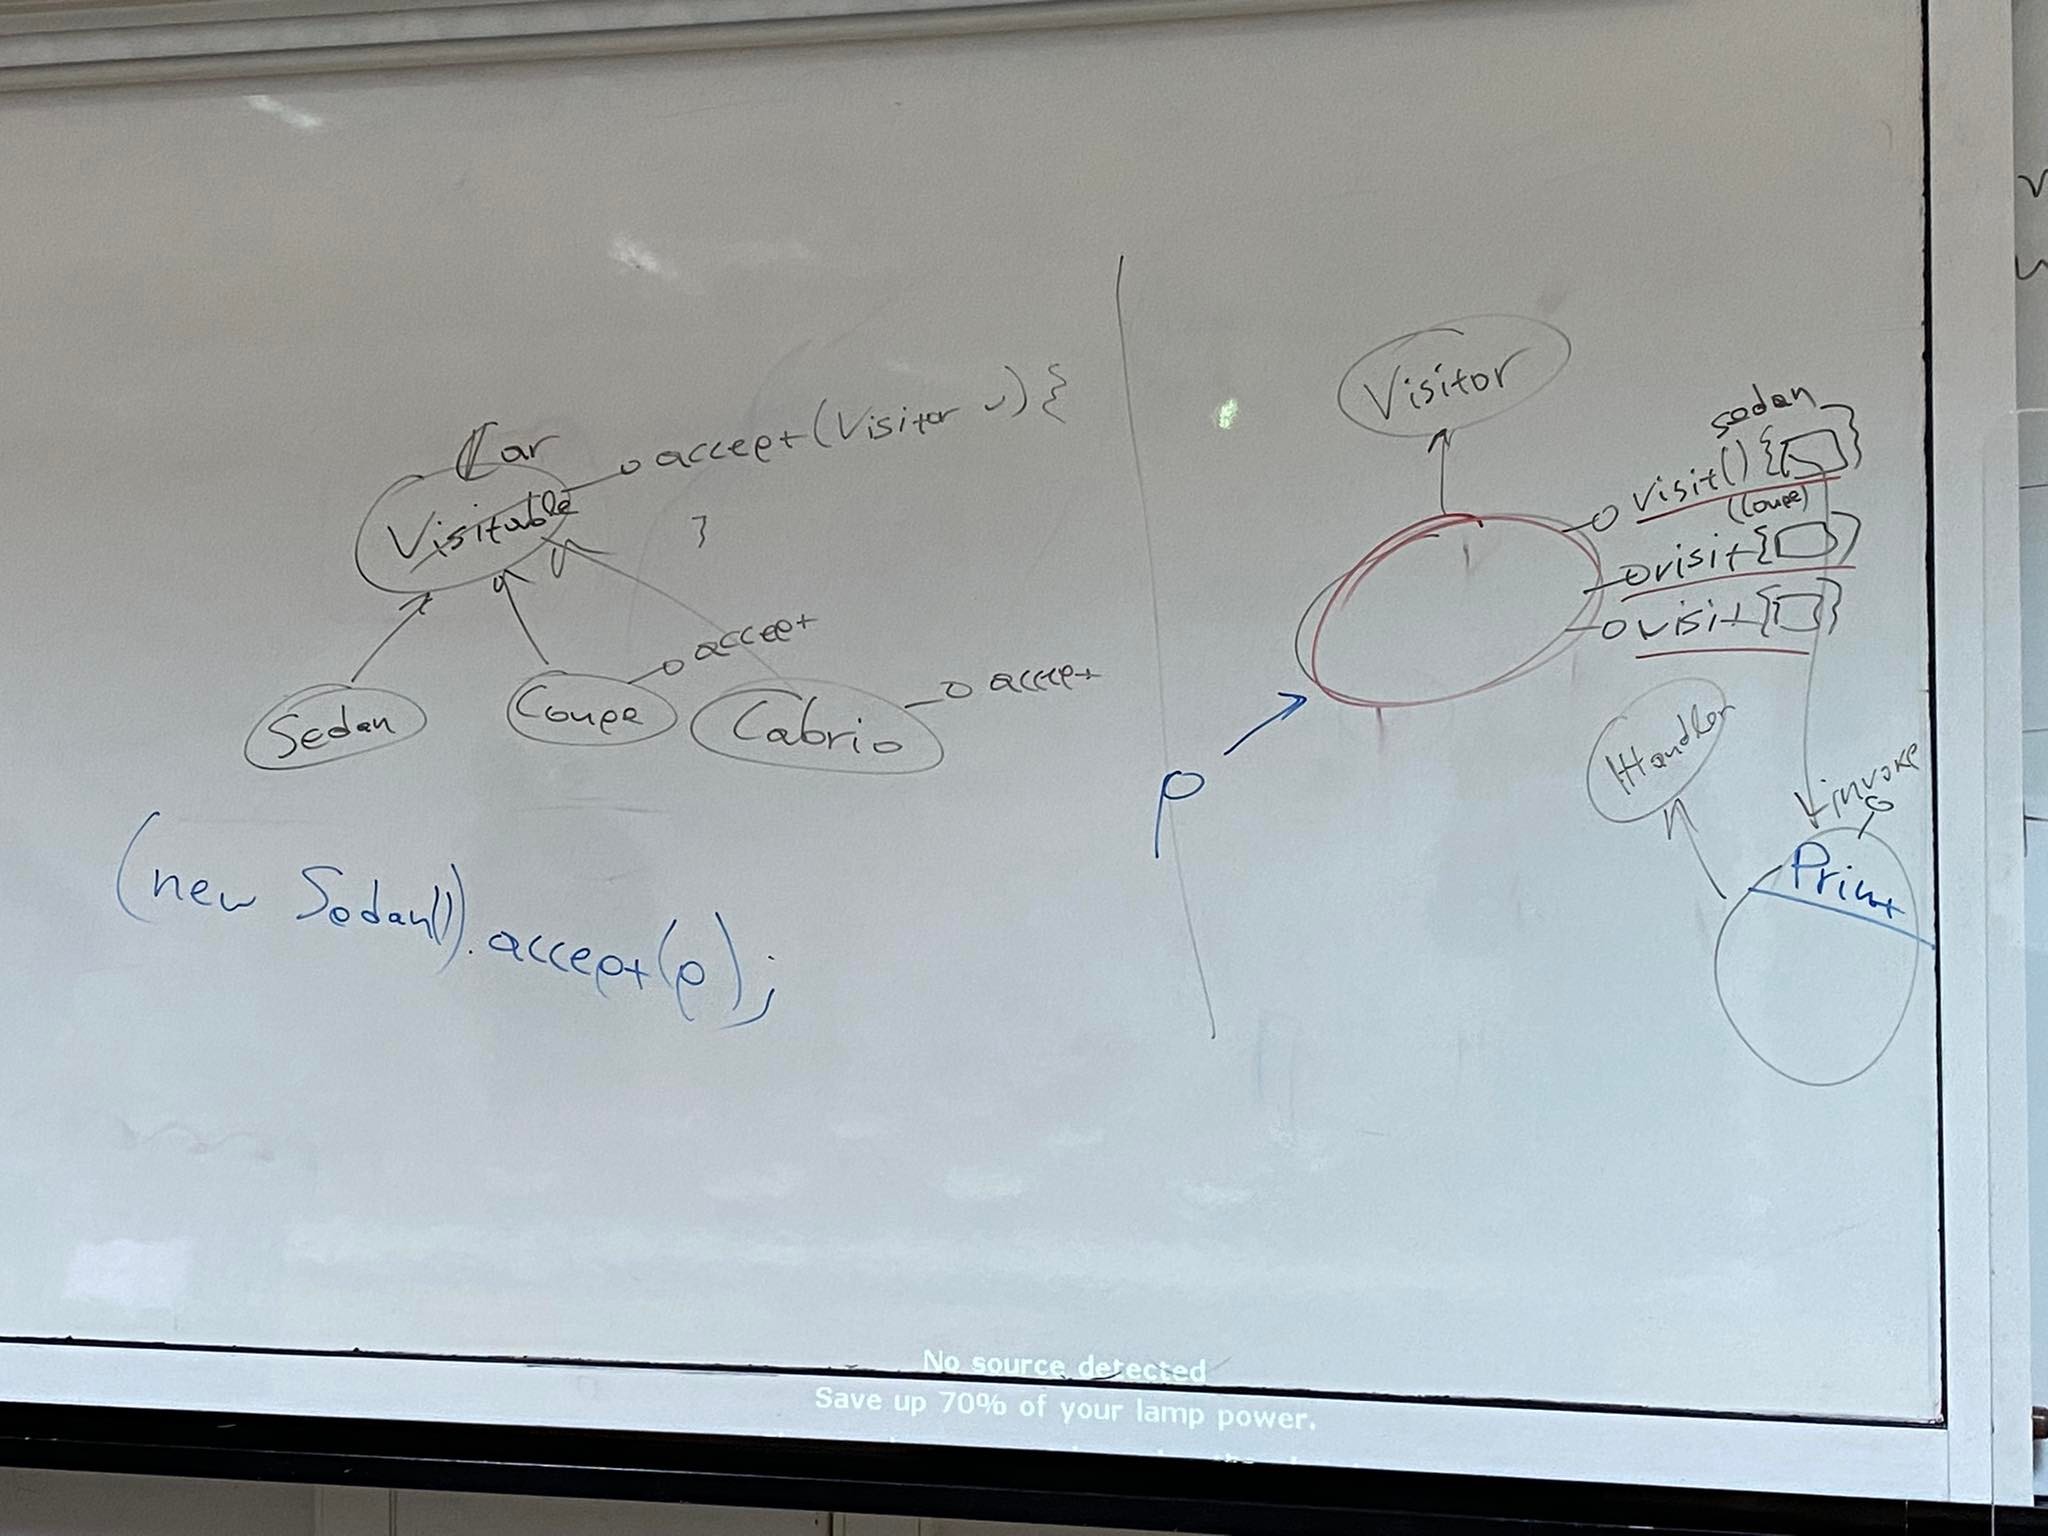 Car
Visitable
accept(Visitor v) {
}
Sedan
Coupe
accept
Cabrio
accept
(new Sedan()).accept(p);
Visitor
sedan
visit() { }
(Coupe)
visit { }
visit { }
p
IHandler
invoke
Print
No source detected
Save up 70% of your lamp power.